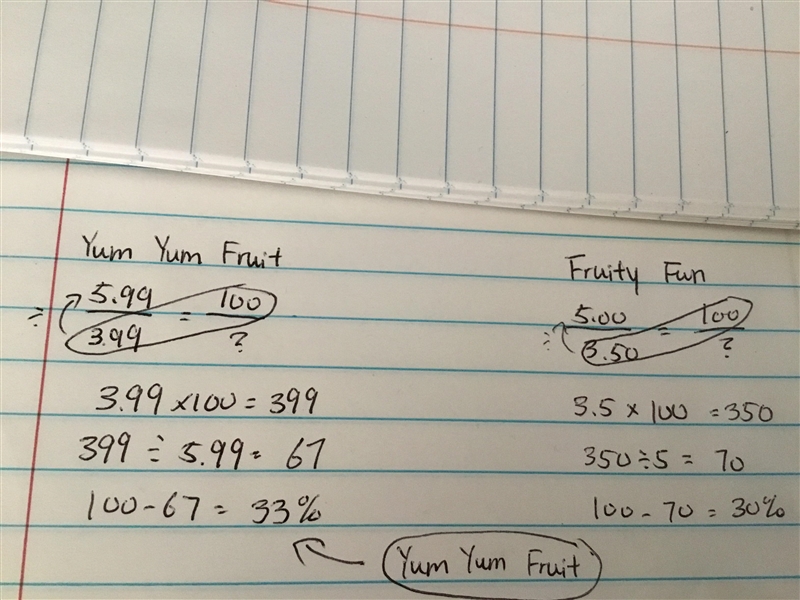 Yum Yum Fruit
÷ 5.99 = 100
3.99 ?
3.99 x 100 = 399
399 ÷ 5.99 = 67
100 - 67 = 33%
Fruity Fun
÷ 5.00 = 100
3.50 ?
3.5 x 100 = 350
350 ÷ 5 = 70
100 - 70 = 30%
Yum Yum Fruit